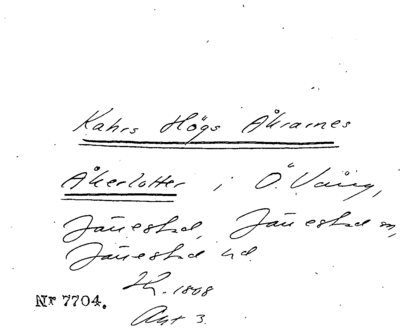 Kahrs Högs Åkrarnes
Åkerlotter i Ö. Vång,
Jänestad, Jänestad sn,
Jänestad hd.
1808
Akt 3.
Nr 7704.